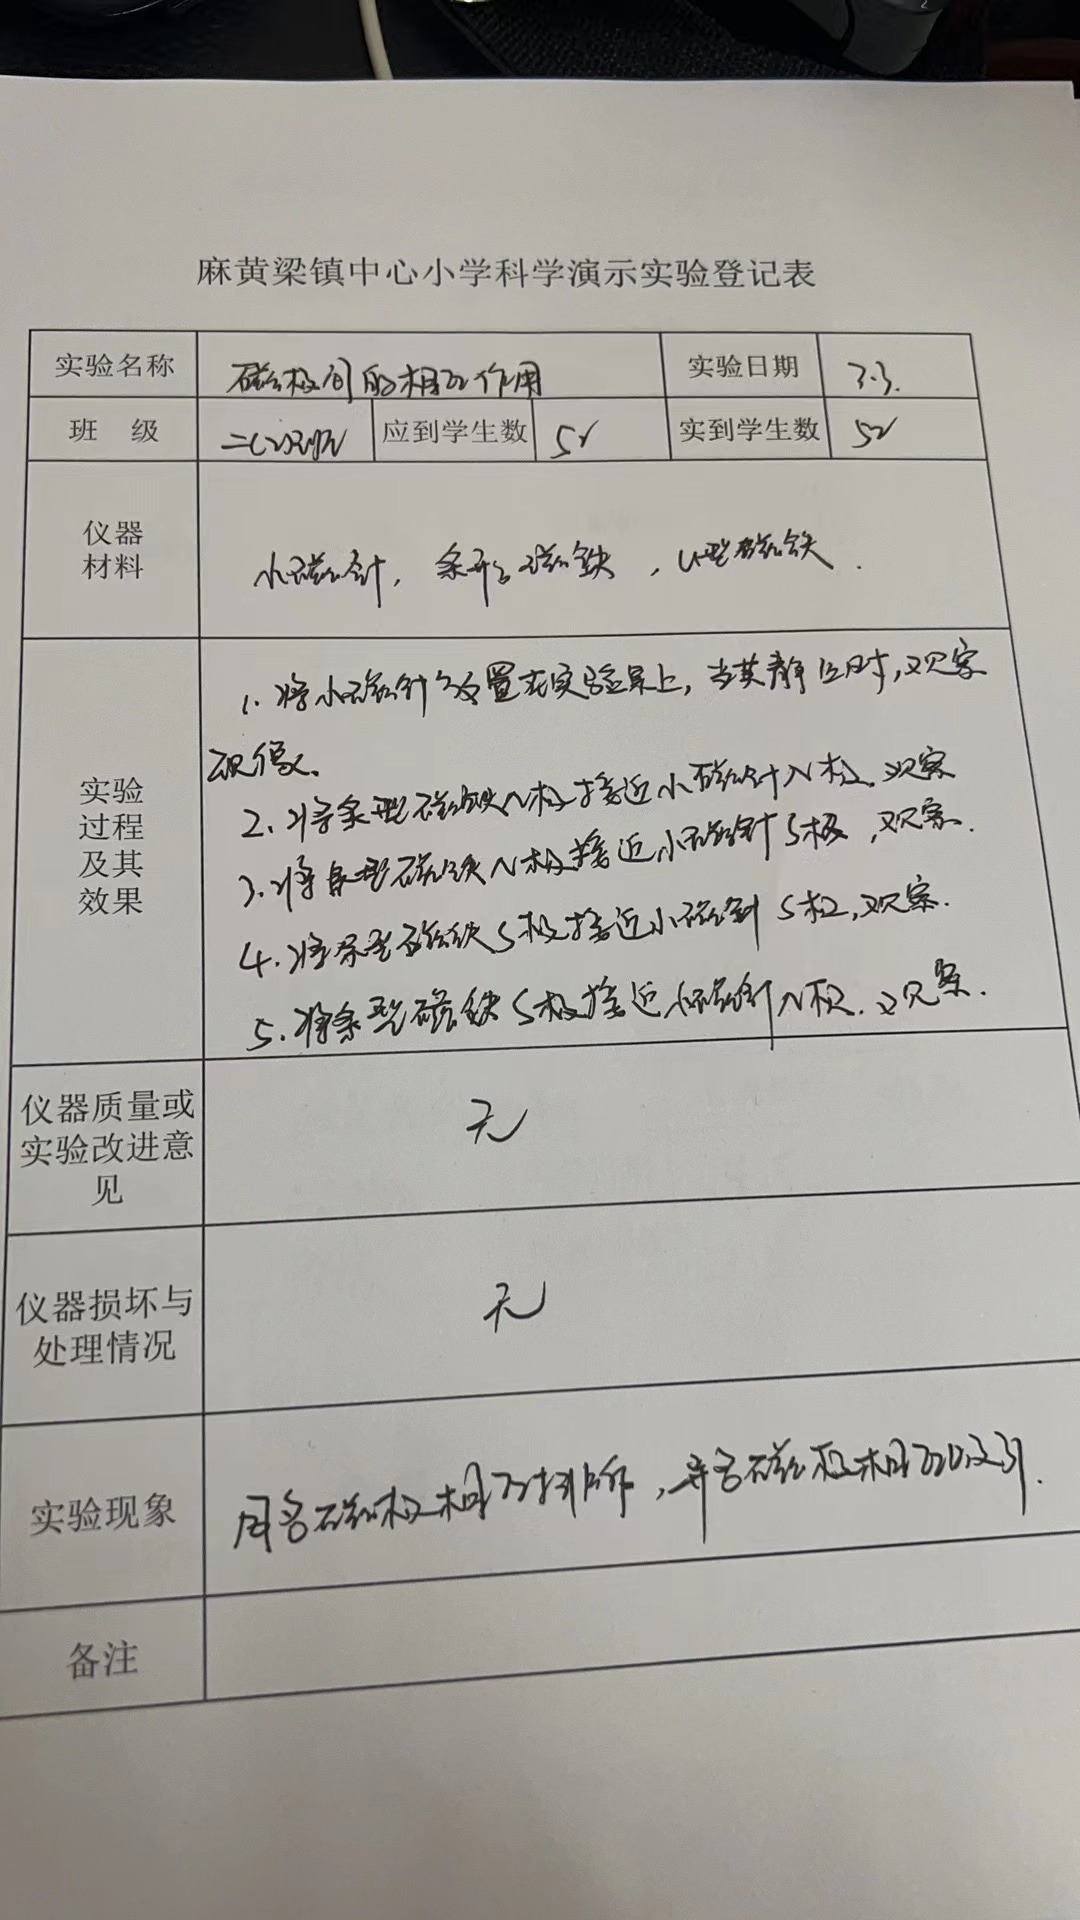 麻黄梁镇中心小学科学演示实验登记表
实验名称 磁极间的相互作用 实验日期 3.3.
班 级 二(2)班 应到学生数 52 实到学生数 52
仪器
材料
小磁针，条形磁铁，U型磁铁.
实验
过程
及其
效果
1.将小磁针放置在实验桌上，当其静止时，观察
现象.
2.将条型磁铁N极接近小磁针N极.观察
3.将条型磁铁N极接近小磁针S极，观察.
4.将条型磁铁S极接近小磁针S极，观察.
5.将条型磁铁S极接近小磁针N极.观察.
仪器质量或
实验改进意
见
无
仪器损坏与
处理情况
无
实验现象
同名磁极相互排斥，异名磁极相互吸引.
备注